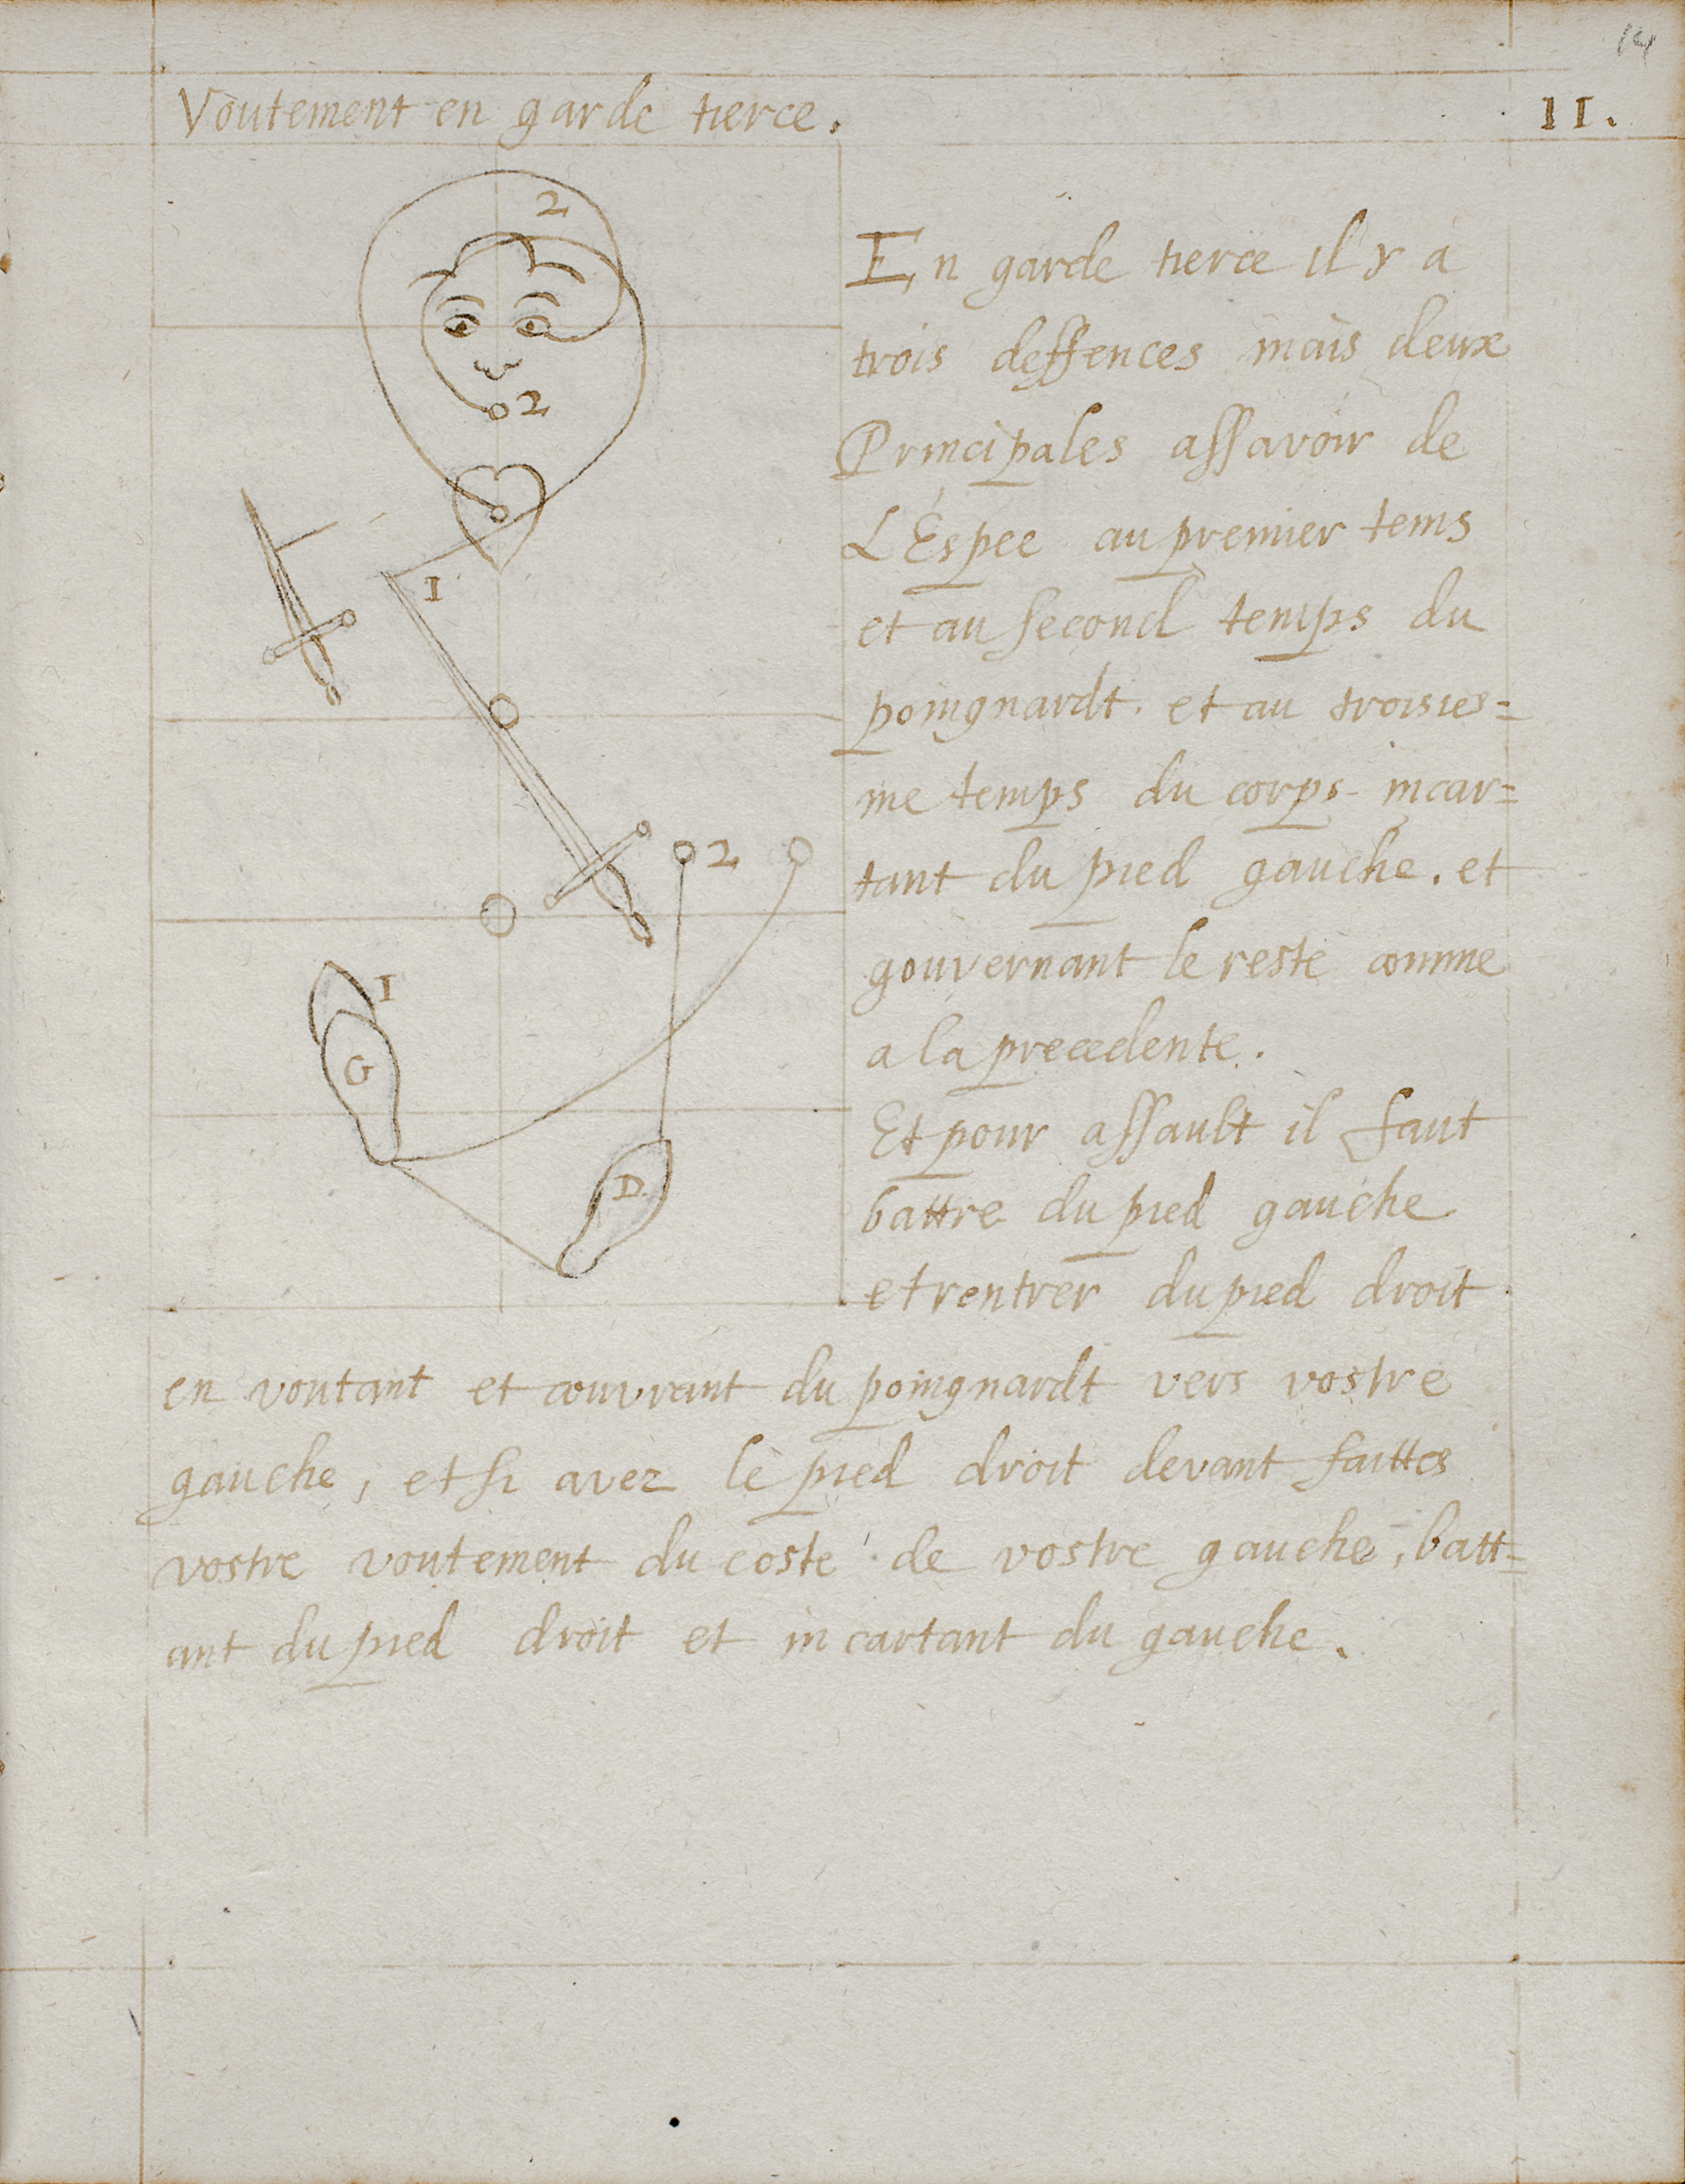 14
Voutement en garde tierce.
II.
2
2
I
2
I
G
D
En garde tierce il y a
trois deffences mais deux
Principales assavoir de
L'Espee au premier tems
et au second temps du
poingnardt. et au troisies=
me temps du corps incar=
tant du pied gauche. et
gouvernant le reste comme
a la precedente.
Et pour assault il faut
battre du pied gauche
et rentrer du pied droit
en voutant et couvrant du poingnardt vers vostre
gauche, et si avez le pied droit devant faittes
vostre voutement du coste de vostre gauche, batt=
ant du pied droit et incartant du gauche.